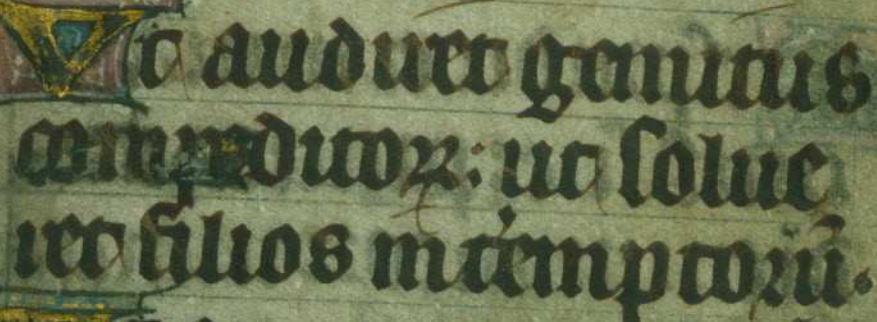 Vt audiret gemitus
compeditoꝝ: ut solue
ret filios int̉emptorū.